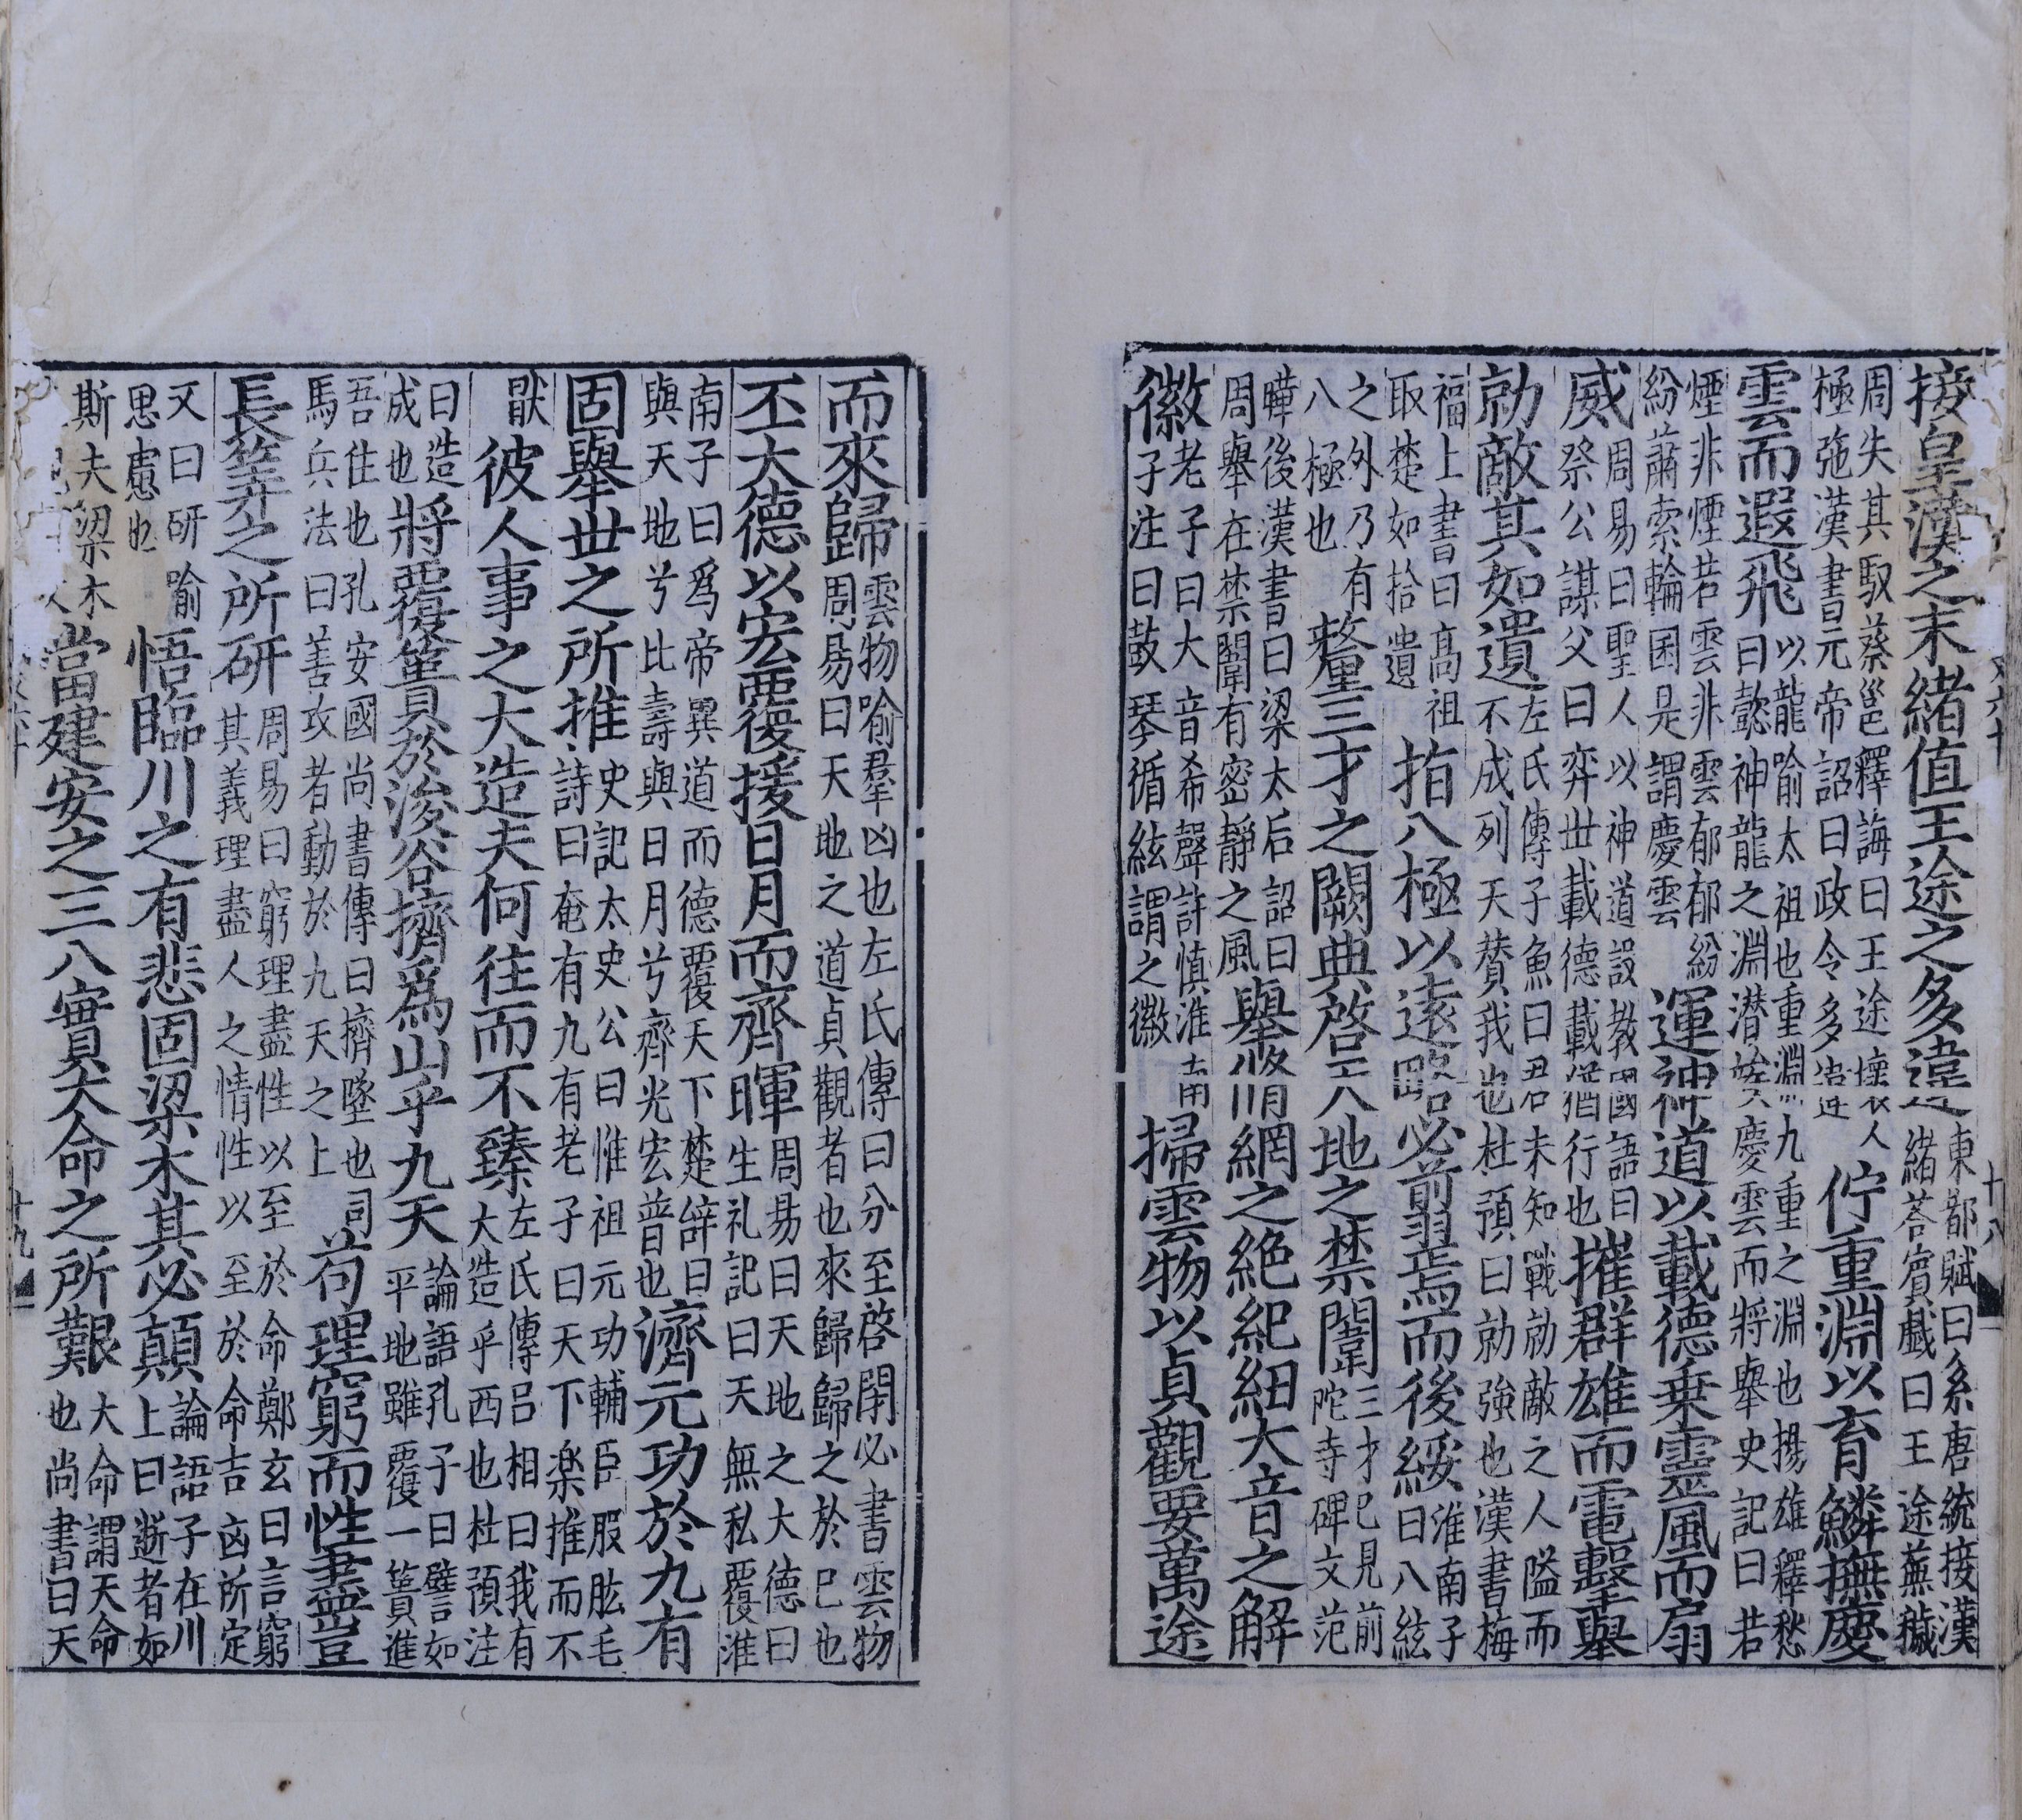 接皇漢之末緒値王途之多違東都賦曰系唐統接漢緒荅賓戲曰王途蕪穢
周失其馭蔡邕釋誨曰王途壞人極弛漢書元帝詔曰政令多違佇重淵以育鱗撫慶
雲而遐飛以龍喻太祖也重淵九重之淵也揚雄釋愁曰懿神龍之淵潜竢慶雲而將舉史記曰若
煙非煙若雲非雲郁郁紛紛蕭索輪囷是謂慶雲運神道以載德乗靈風而扇
威周易曰聖人以神道設教國語曰祭公謀父曰弈丗載德載猶行也摧群雄而電擊舉
勍敵其如遺左氏傳子魚曰君未知戰勍敵之人隘而不成列天賛我也杜預曰勍強也漢書梅
福上書曰髙祖取楚如拾遺指八極以逺略必翦焉而後綏淮南子曰八紘
之外乃有八極也釐三才之闕典啓天地之禁闈三才已見前陀寺碑文范
曄後漢書曰梁太后詔曰周舉在禁闈有密靜之風舉脩網之絶紀紐大音之解
徽老子曰大音希聲許慎淮南子注曰鼓琴循絃謂之徽掃雲物以貞觀要萬途
而來歸雲物喻羣凶也左氏傳曰分至啓閉必書雲物周易曰天地之道貞觀者也來歸歸之於已也
丕大德以宏覆援日月而齊暉周易曰天地之大德曰生礼記曰天無私覆淮
南子曰爲帝異道而德覆天下楚辭曰與天地兮比壽與日月兮齊光宏普也濟元功於九有
固舉世之所推史記太史公曰惟祖元功輔臣股肱毛詩曰奄有九有老子曰天下楽推而不
猒彼人事之大造夫何往而不臻左氏傳吕相曰我有大造乎西也杜預注
曰造成也將覆簣於浚谷擠爲山乎九天論語孔子曰譬如平地雖覆一簣進
吾往也孔安國尚書傳曰擠墜也司馬兵法曰善攻者動於九天之上苟理窮而性盡豈
長筭之所研周易曰窮理盡性以至於命鄭玄曰言窮其義理盡人之情性以至於命吉凶所定
又曰研喻思慮也悟臨川之有悲固梁木其必顛論語子在川上曰逝者如
斯夫梁木當建安之三八實大命之所艱大命謂天命也尚書曰天
十八
十九